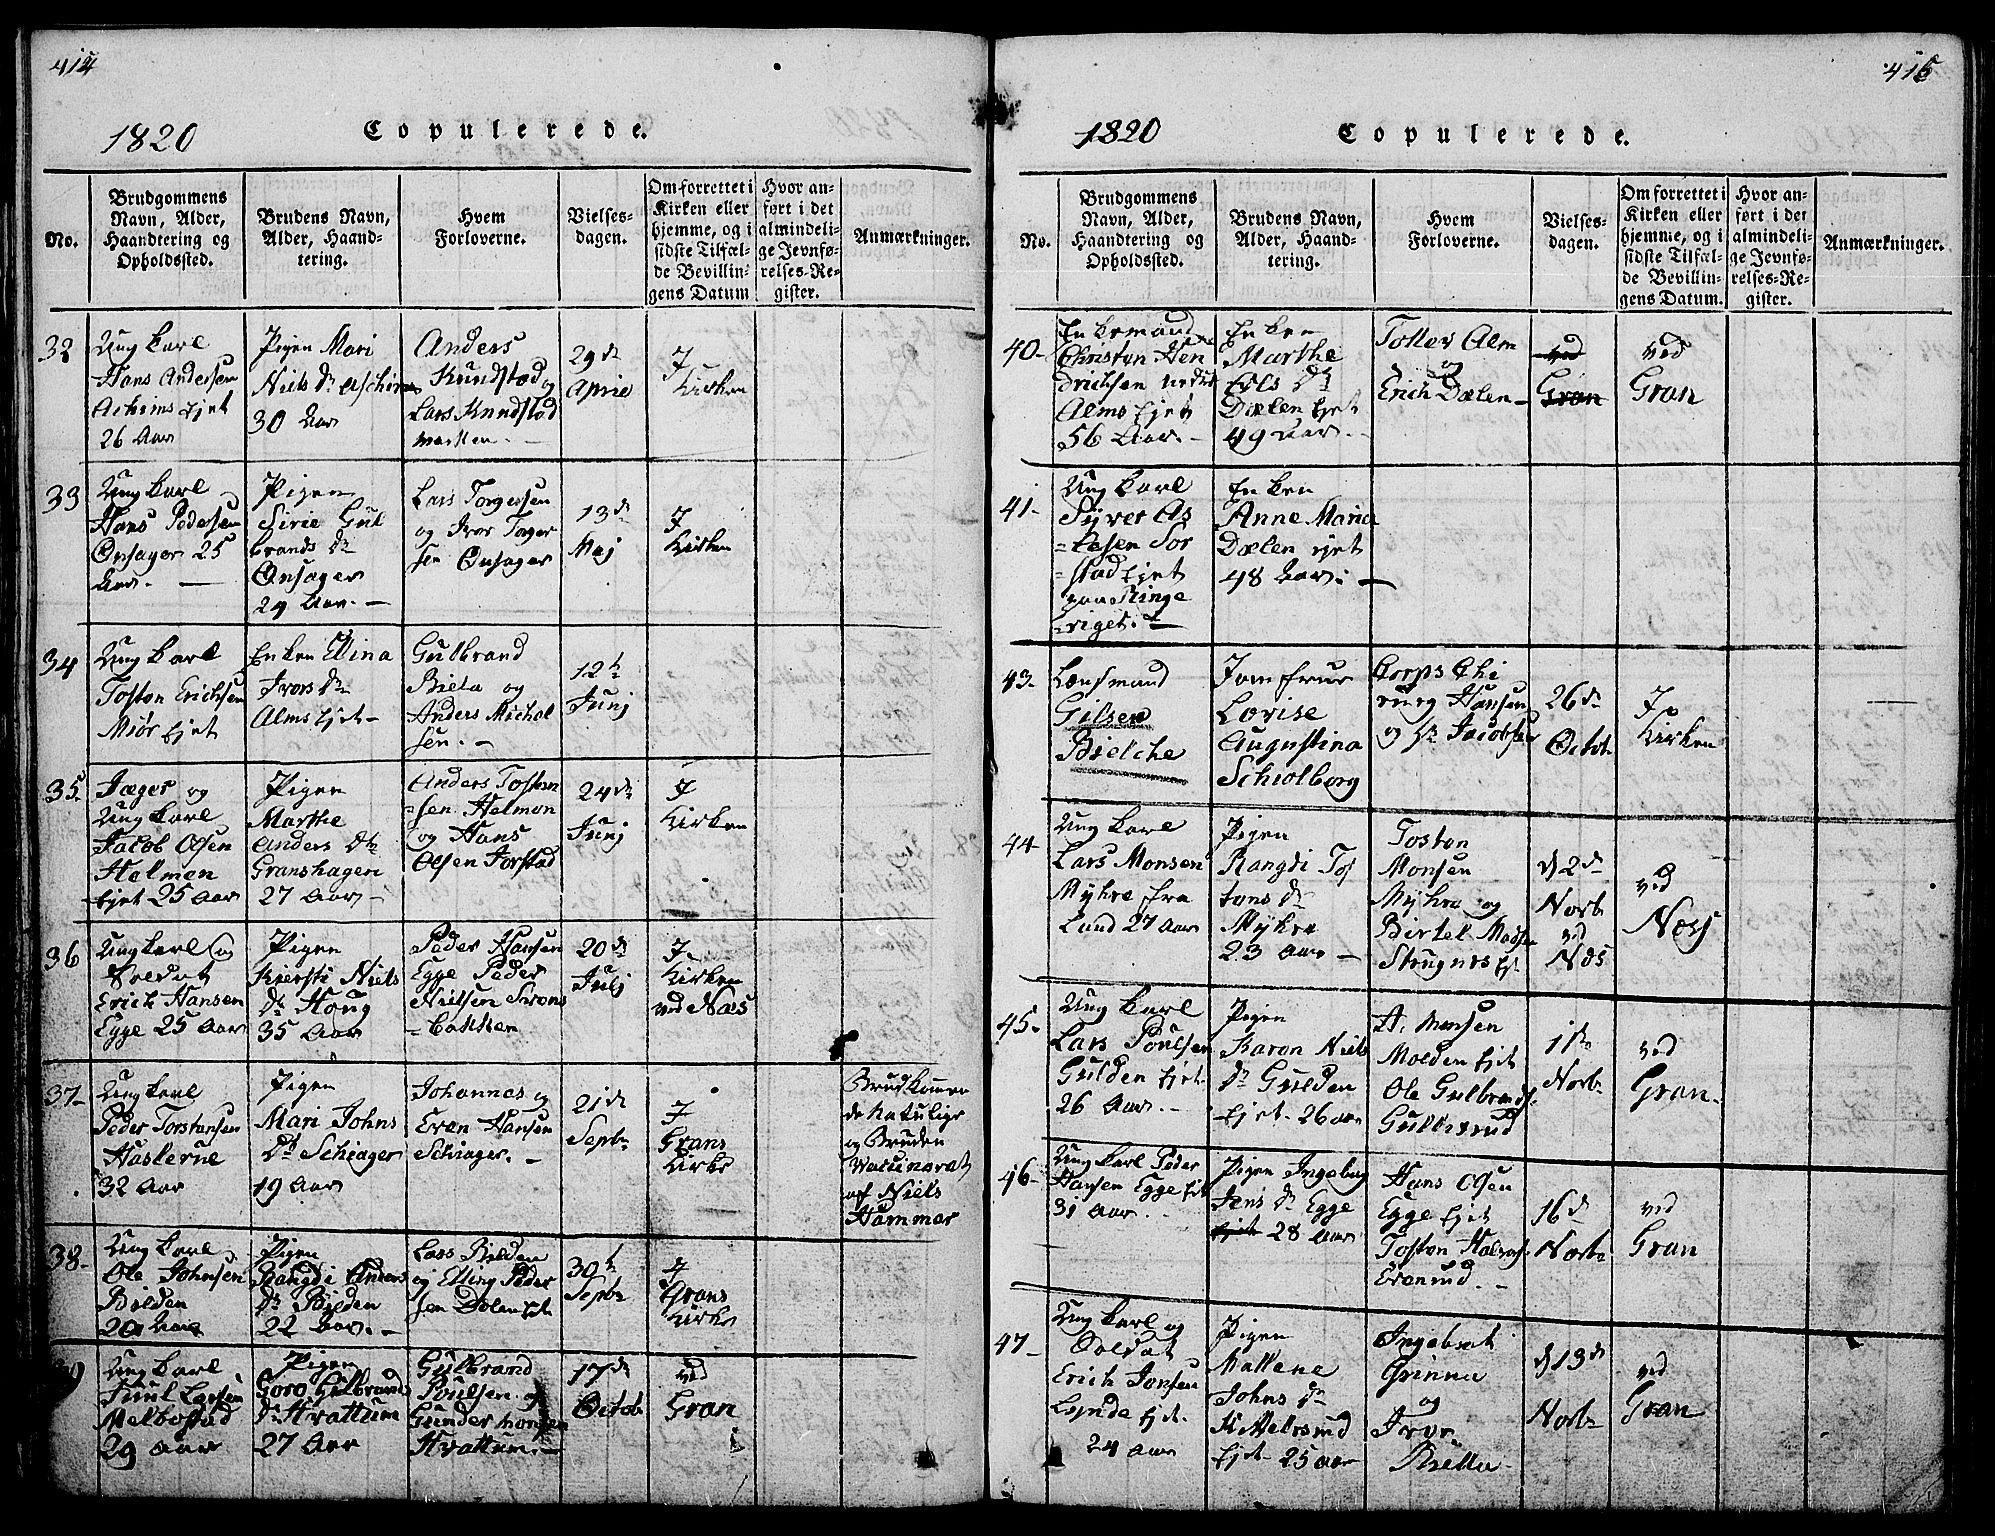 414
1820 Copulerede.
No.
Brudgommens
Navn, Alder,
Haandtering og
Opholdssted.
Brudens Navn,
Alder, Haand-
tering.
Hvem
Forloverne.
Vielses-
dagen.
Om forrettet i
Kirken eller
hjemme, og i
sidste Tilfæl-
de Bevillin-
gens Datum
Hvor an-
ført i det
almindeli-
ge Jevnfø-
relses-Re-
gister.
Anmærkninger.
32
Ung karl
Hans Andersen
Achims Ejet
26 Aar
Pigen Mari
Niels Dr Aschims
30 Aar
Anders
Knndstad og
Lars Knndstad
marken. -
29de
April
I
Kirken
33
Ung karl
Hans Pedersen
Onsager 25
Aar. -
Pigen
Sirie Gul
brands Dr
Onsager
24 Aar. -
Lars Torgersen
og Ivor Torger
sen Onsager
13de
Maj
I
Kirken
34
Ung karl
Toston Erichsen
Miør Ejet
Enken Elina
Ivors Dr
Alms Ejet -
Gulbrand
Biela og
Anders Michel
sen. -
12t
Junj
35
Jæger og
Ung karl
Jacob Olsen
Helmen
Ejet 25 Aar
Pigen
Marthe
Anders Dr
Granshagen
27 Aar -
Anders Tosten
=sen Helmen
og Hans
Olsen Jorstad
24de
Junj
I
Kirken
36
Ung karl og
Soldat
Erich Hansen
Egge 25 Aar
Pigen
Kiersti Niels
Dr Houg
35 Aar
Peder Hansen
Egge Peder
Nielsen Svens
=bakken
20de
Julj
I
Kirken
ved Næs
37-
Ung karl
Peder Torstensen
Haslerne
32 Aar
Pigen
Mari Johns
Dr Schiager
19 Aar
Johannes og
Even Hansen
Schiager. -
21de
Sepbr
I
Grans
Kirke
Brudkomen
de Natulige
og Bruden
Vacuinerat
af Niels
Hammer
38-
Ung karl
Ole Johnsen
Bilden
20 Aar
Pigen
Rangdi Anders
Dr Bilden
22 Aar. -
Lars Bilden
og Elling Peder
sen Dælen Ejet
30t
Sepbr
I
Grans
Kirke
39
Ung karl
Juul Larsen
Melbostad
29 Aar
Pigen
Goro Gulbrands
Dr Hvattum
27 Aar
Gulbrand
Poulsen og
Gunder Monsen
Hvattum. -
17de
Octob
ved
Gran
415
1820 Copulerede.
No.
Brudgommens
Navn, Alder,
Haandtering og
Opholdssted.
Brudens Navn,
Alder, Haand-
tering.
Hvem
Forloverne.
Vielses-
dagen.
Om forrettet i
Kirken eller
hjemme, og i
sidste Tilfæl-
de Bevillin-
gens Datum.
Hvor an-
ført i det
almindeli-
ge Jevnfø-
relses-Re-
gister.
Anmærkninger.
40-
Enkemand
Christen Hen
drichsen nedre
Alms Ejet
56 Aar. -
Enken
Marthe
Eils Dr
Dælen Ejet
49 Aar. -
Tollev Alm
og
Erich Dælen -
ved
Gran
ved
Gran
41-
Ung karl
Syver As
=lesen Sor
=stad Ejet
paa Ringe
=riget. -
Enken
Anne Maria
Dælen Ejet
48 Aar. -
43-
Lensmand
Gilsen
Bielche
Jomfrue
Lovise
Augustina
Schiolberg
Corps Chi
rurg Hansen
og Hr Jacobsen
26de
Octob
I
Kirken
44-
Ung karl
Lars Monsen
Myhre fra
Land 27 Aar
Pigen
Rangdi Tos
tens Dr
Myhre
23 Aar -
Toston
Monsen
Myhre og
Birtel Madsen
Strugnes Ejt
d 2de
Novb
ved
Næs
ved
Næss
45-
Ung karl
Lars Poulsen
Gulden Ejet
26 Aar. -
Pigen
Karon Niels
Dr Gulden
Ejet 26 aar
A. Monsen
Molden Ejet
Ole Gulbrands.
Gulbrsrud
11te
Novbr
ved
Gran.
46-
Ung karl Peder
Hansen Egge Ejet
31 Aar. -
Pigen Ingeborg
Jens Dr Egge
Ejet 28 Aar
Hans Olsen
Egge Ejet
Toston Halvors
Evenrud. -
16de
Novbr
ved
Gran
47-
Ung karl og
Soldat
Erich Jonsen
Lynde Ejet.
24 Aar
Pigen
Mallene
Johns Dr
Kittelsrud
Ejet 25 aar
Ingebret
Grinna
og
Iver
Billa
d 13de
Novbr
ved
Gran